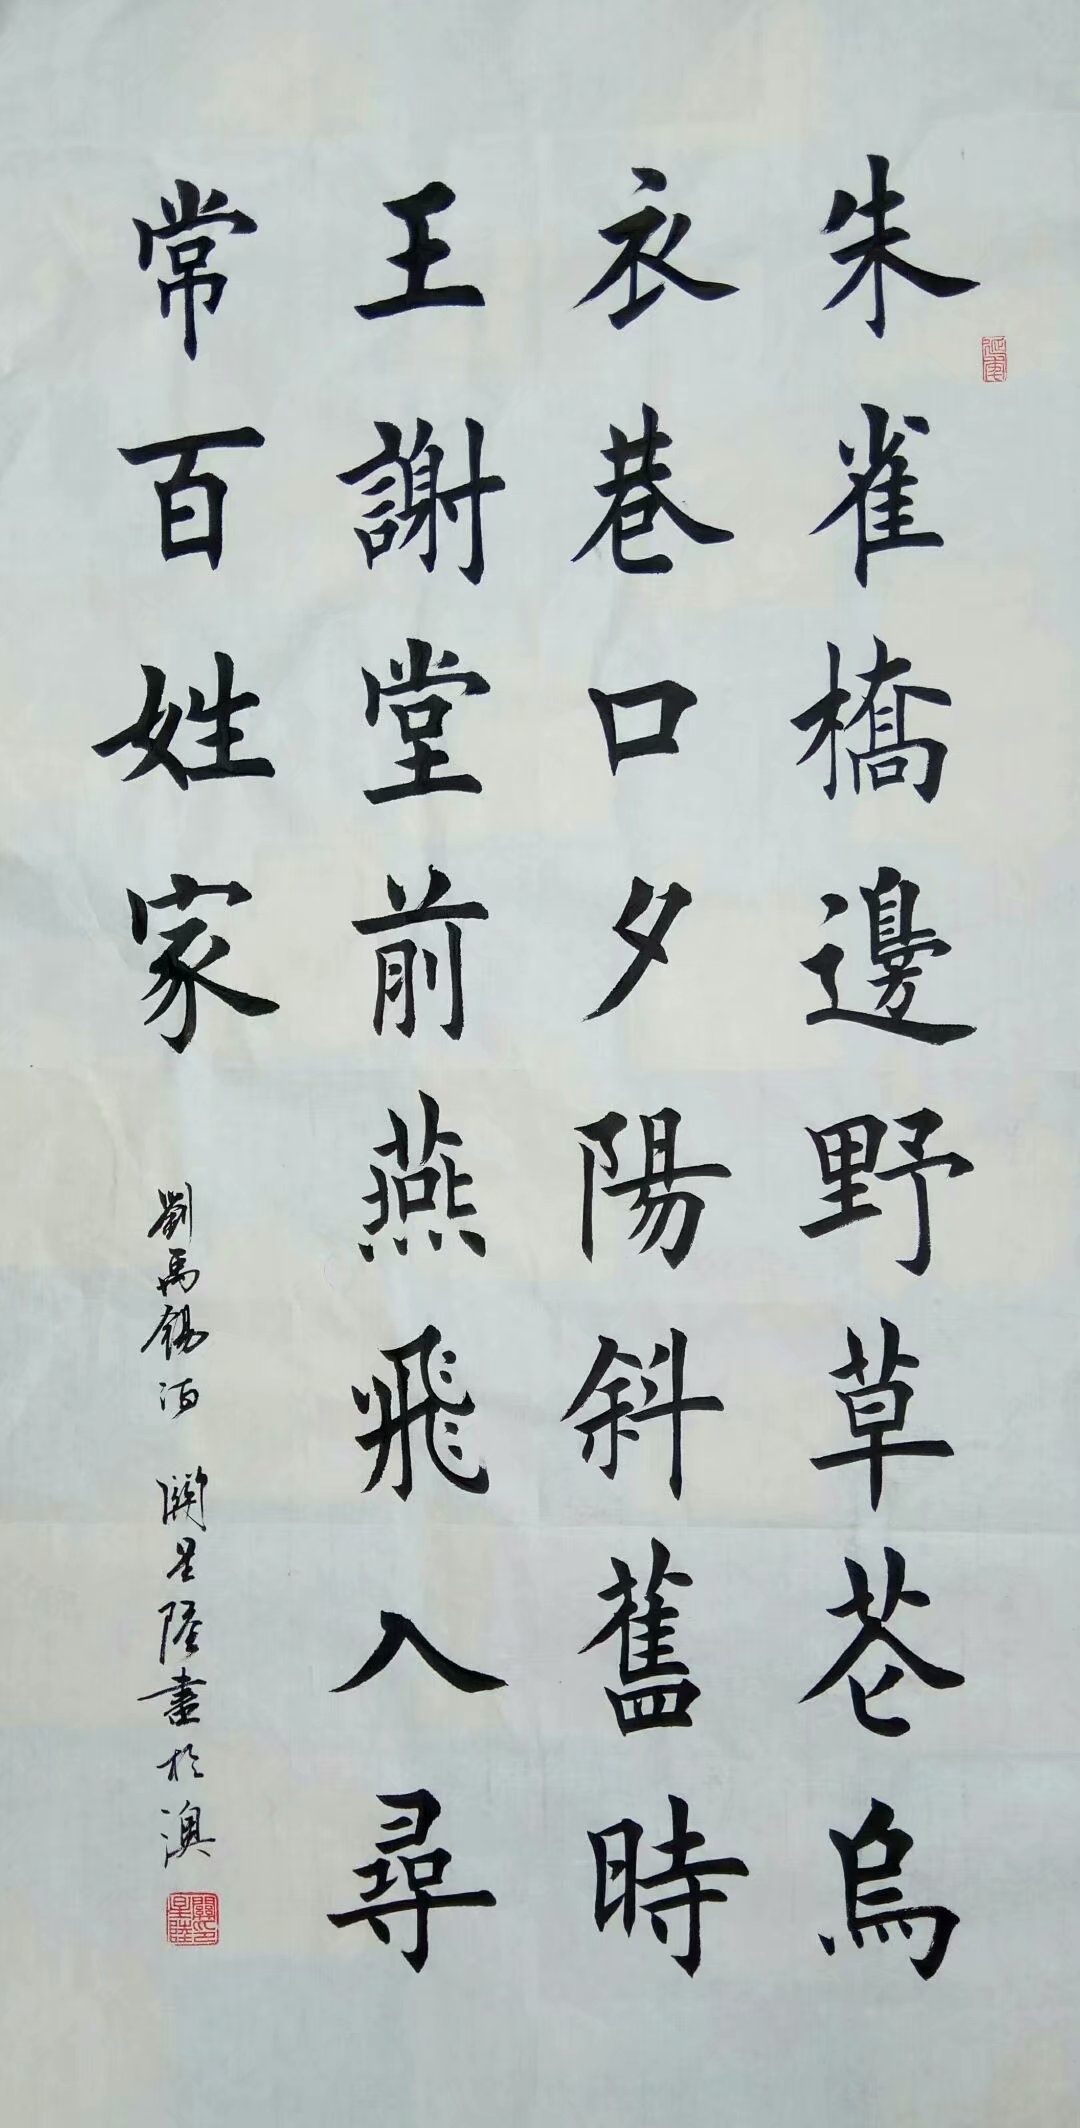 朱雀橋邊野草苍烏
衣巷口夕陽斜舊時
王謝堂前燕飛入尋
常百姓家
劉禹錫 關星陸書於澳
關印星陸